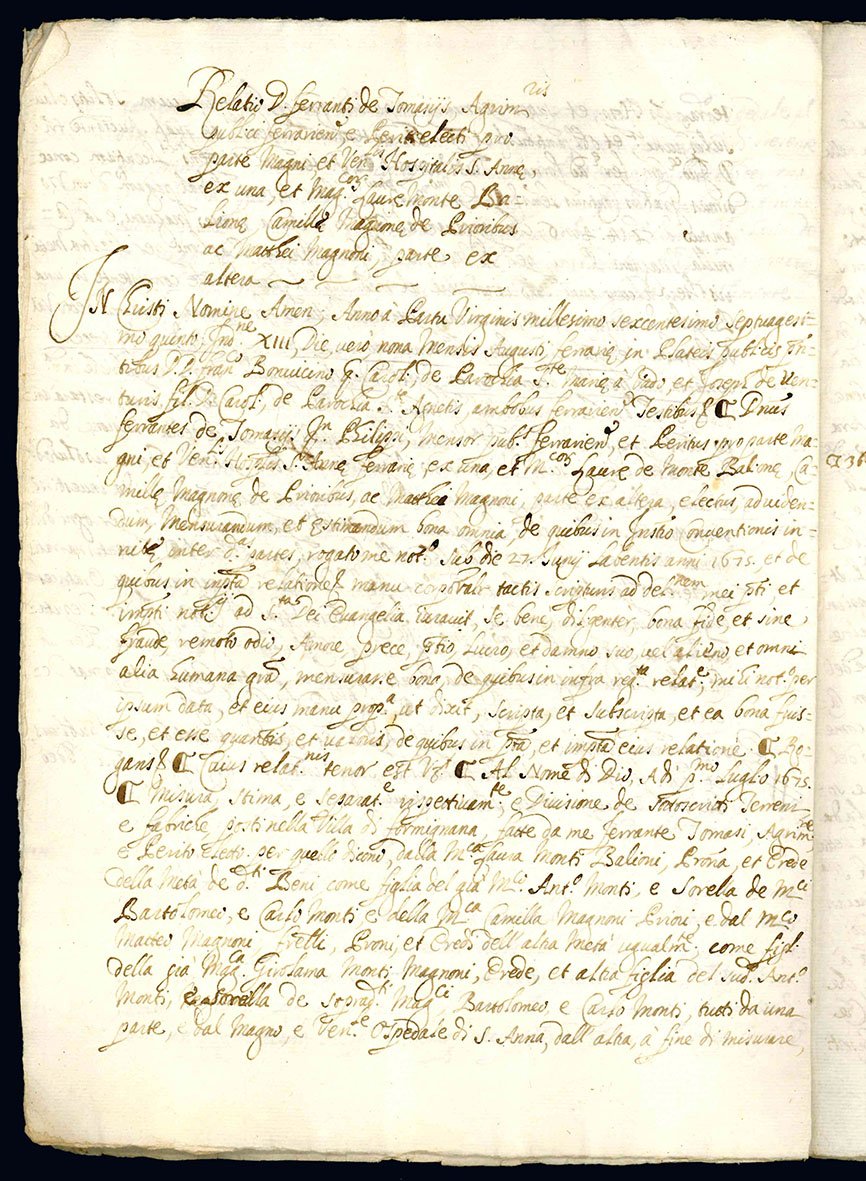 Relatio D. ferranti de Tomasijs Agrim.ris
publici ferrarien. e Periti electi pro
parte Magni et Ven. Hospitalis S. Annę,
ex una, et Mag.cor Laurę Monte Ba=
lionę, Camillę Magnonę de Prioribus
ac Matthei Magnoni, parte ex
altera
IN Christi Nomine Amen, Anno à Partu Virginis millesimo sexcentesimo septuagesi=
mo quinto, Ind.ne XIII, Die vero nona Mensis Augusti, ferrarię in Plateis publicis
tibus D.D. Fran. Bonvicino q. Carol. de Parochia S.tę Marię à Vado et Joseph de Ven=
turis fil. D. Carol. de Parochia S. Agnetis, ambobus ferrarien. Testibus & C Dnus
ferrantes de Tomasijs Philippi, Mensor pub. ferrarien., et Peritus pro parte Ma=
gni, et Ven. Hosplis S. Annę ferrarię ex una, et M.cor Laurę de Monte Balionę, Ca=
millę Magnonę de Prioribus, ac Matthei Magnoni, parte ex altera, electus, ad viden=
dum, Mensurandum, et Estimandum bona omnia, de quibus in Instro Conventionis in=
nitę inter d.as partes, rogato me not. sub die 27. Junij labentis anni 1675. et de
quibus in relatione & manu corporalr tactis scripturis ad del.nem mei et
not.ij ad S.ta Dei Evangelia iuravit, se bene, diligenter, bona fide, et sine
fraude, remoto odio, Amore, prece, ptio, Lucro, et damno suo vel alieno, et omni
alia humana grã, mensurasse bona, de quibus in infra relat., mihi not. per
ipsum data, et eius manu prop.a, ut dixit, scripta, et subscripta, et ea bona fuis=
se, et esse quantitis, et valoris, de quibus in et eius relatione. C Ro=
gans & C Cuius relat.nis tenor est C Al Nome di Dio, Adi p.mo Luglio 1675.
C Misura, stima, e separat.e rispettivam.te, e Divisione de sottoscritti Terreni
e fabriche, posti nella Villa di formignana, fatte da me ferrante Tomasi, Agrim.re
e Perito eletto per quello dicono, dalla M.ca Laura Monti Balioni, Prona, et Erede
della Metà de d.tti Beni come figlia del già M.ci Ant.o Monti, e Sorella de M.ci
Bartolomeo, e Carlo Monti e della M.ca Camilla Magnoni Prioni, e dal M.co
Matteo Magnoni, frelli, Proni, et Eredi dell' altra Metà ugualm.e, come figli
della già Mag.ca Girolama Monti Magnoni, Erede, et altra figlia del sud.o Ant.o
Monti, e sorella de soprad.ti Mag.ci Bartolomeo, e Carlo Monti, tutti da una
parte, e dal Magno, e Ven.e Ospedale di S. Anna, dall' altra, à fine di misurare,